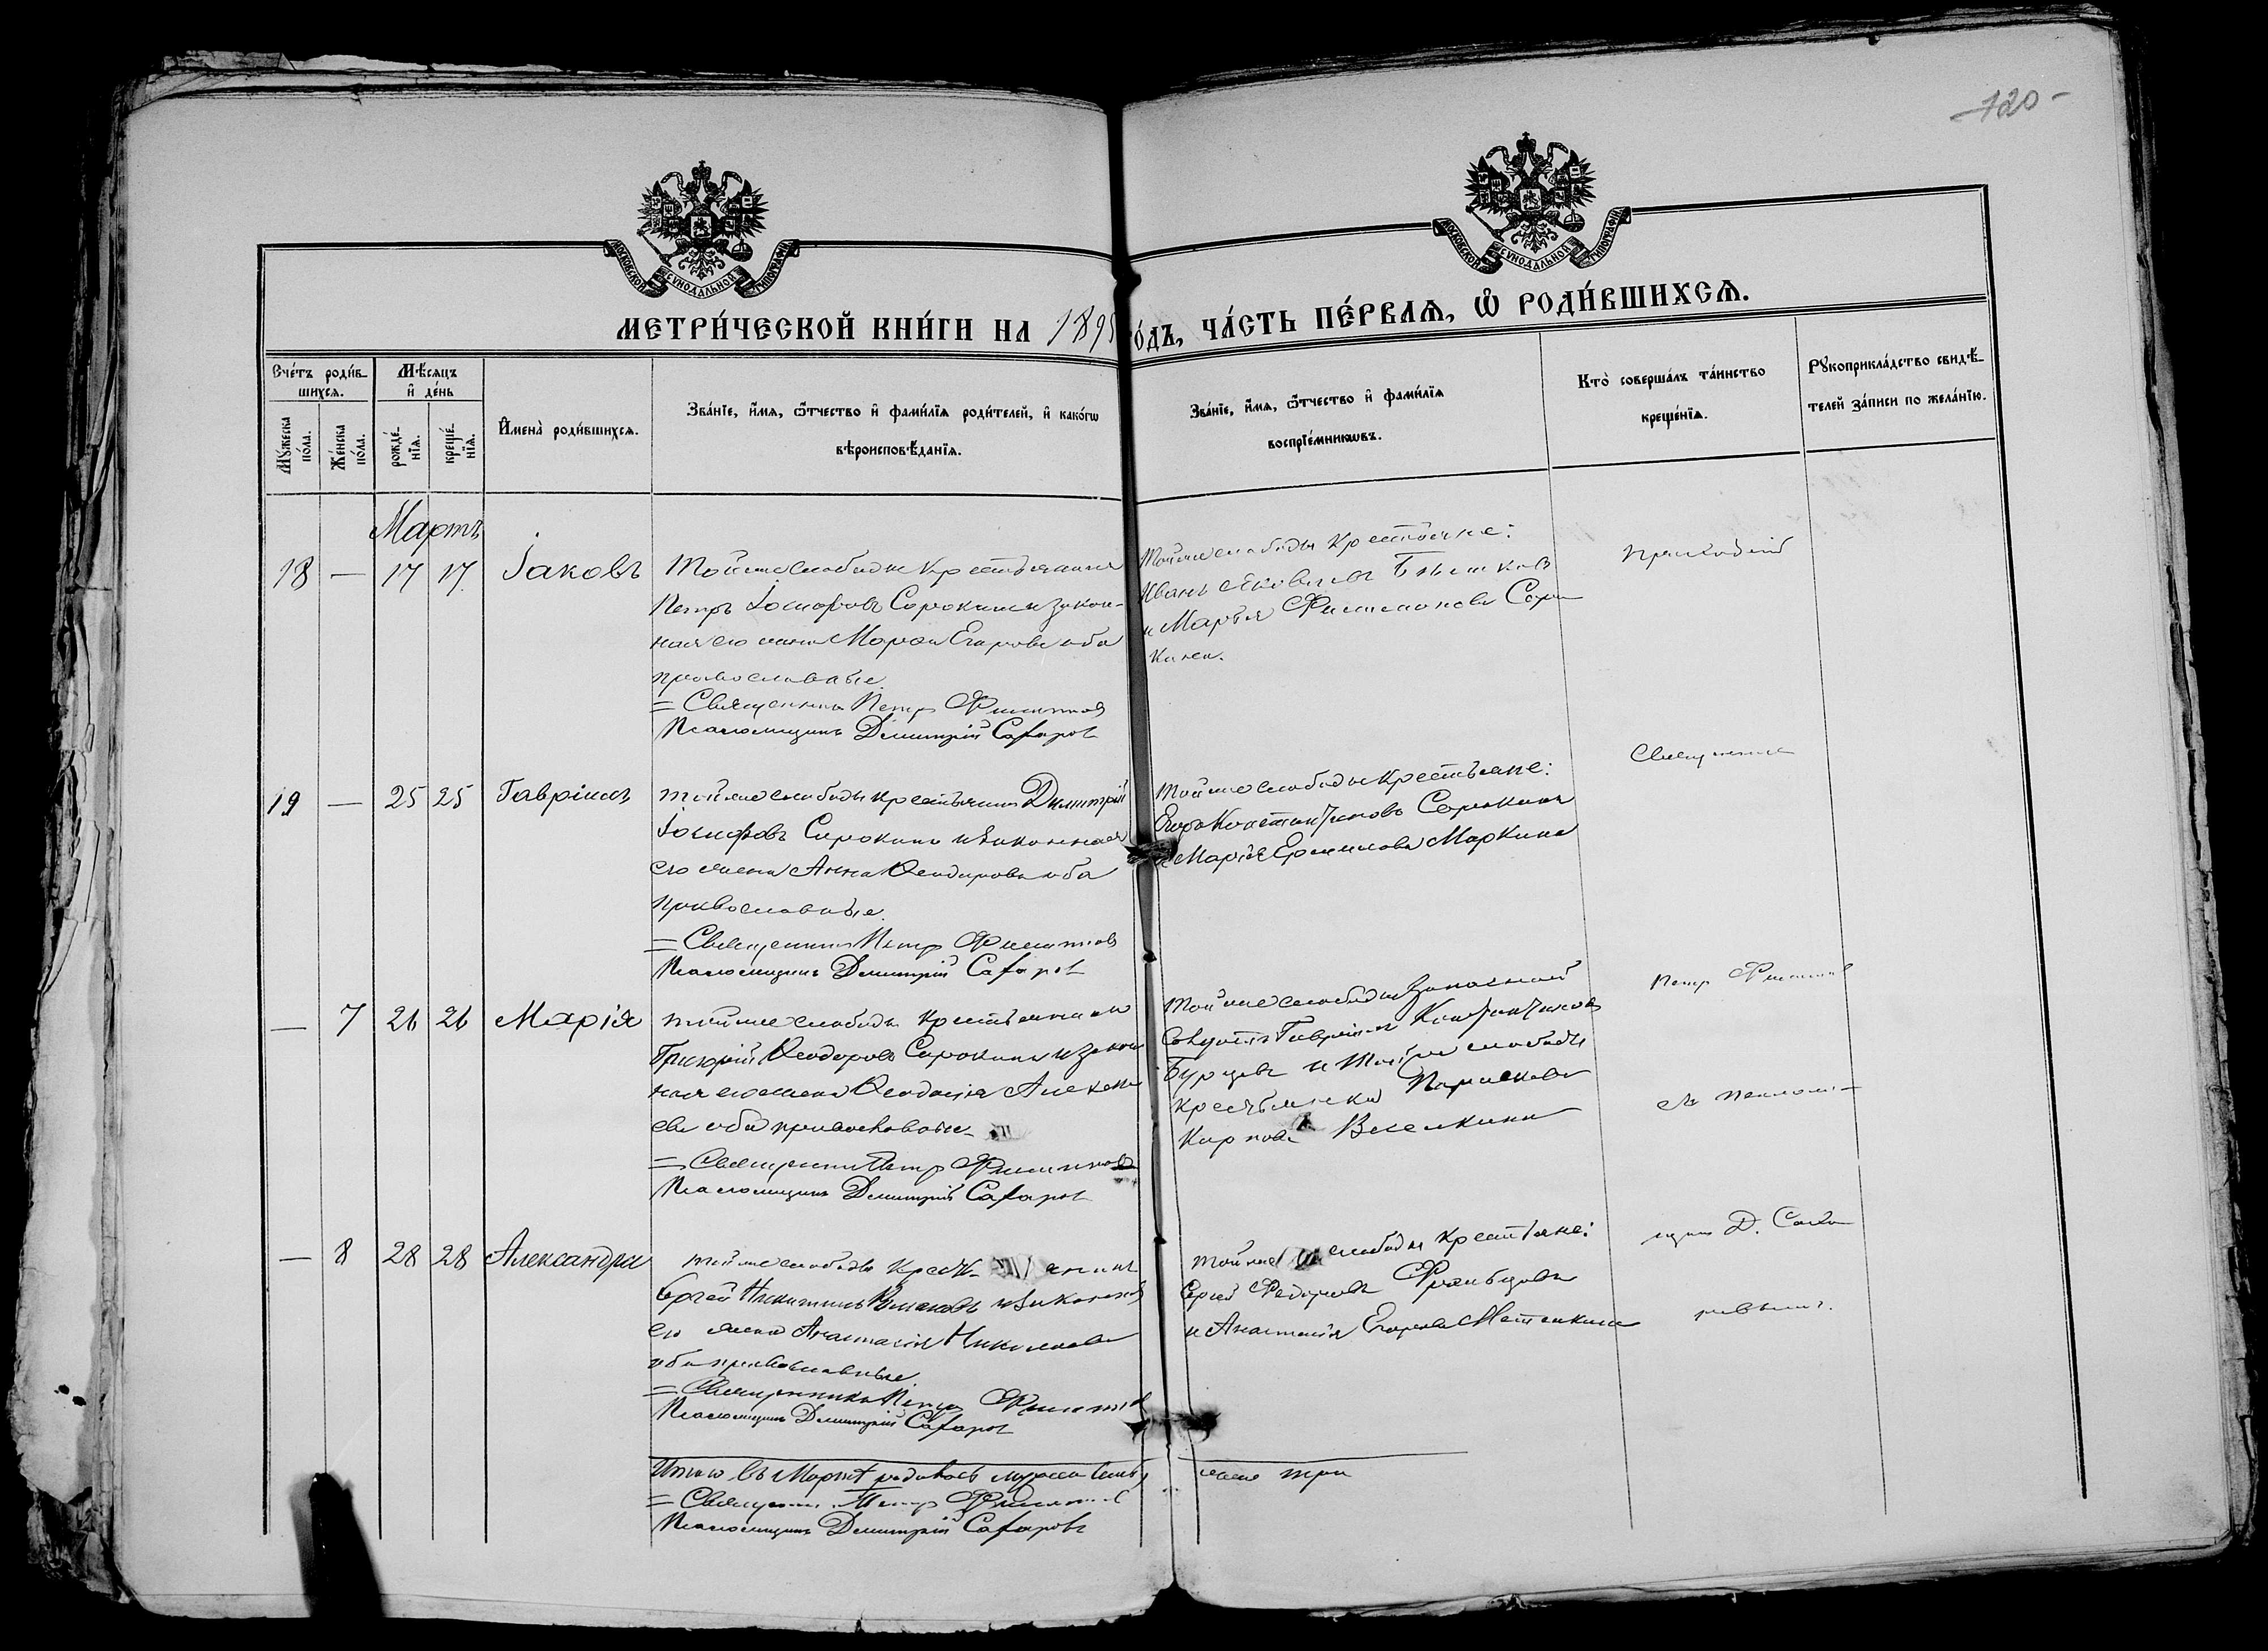 120-
МОСКОВСКОЙ СѴНОДАЛЬНОЙ ТИПОГРАФІИ
МОСКОВСКОЙ СѴНОДАЛЬНОЙ ТИПОГРАФІИ
МЕТРИ́ЧЕСКОЙ КНИ́ГИ НА 1895 го́дъ, ЧА́СТЬ ПЕ́РВАѦ, Ѡ҆ РОДИ́ВШИХСѦ.
Сче́тъ роди́вшихсѧ.
Мꙋ́жеска по́ла.
Же́нска по́ла.
Мѣ́сѧцъ и҆ де́нь
рожде́нїѧ.
креще́нїѧ.
И҆мена̀ роди́вшихсѧ.
Зва́нїе, и҆́мѧ, ѻ҆́тчество и҆ фами́лїѧ роди́телей, и҆ како́гѡ
вѣроисповѣ́данїѧ.
Зва́нїе, и҆́мѧ, ѻ҆́тчество и҆ фами́лїѧ
воспрїе́мникѡвъ.
Кто̀ соверша́лъ та́инство
креще́нїѧ.
Рꙋкоприкла́дство свидѣ́телей за́писи по жела́нїю.
Мартъ
18 — 17 17 Іаковъ
Тойже слободы крестьянинъ
Петръ Іосифовъ Сорокинъ и закон-
ная его жена Марѳа Егорова оба
православные
= Священникъ Петръ Филатовъ
Псаломщикъ Димитрій Сахаровъ
Тойже слободы крестьяне:
Иванъ Яковлевъ
и Марья Филимонова Соро
кина.
Приходскій
19 — 25 25 Гавріилъ
Тойже слободы крестьянинъ Димитрій
Іосифовъ Сорокинъ и законная
его жена Анна Ѳеодорова оба
православные.
= Священникъ Петръ Филатовъ
Псаломщикъ Димитрій Сахаровъ
Тойже слободы крестьяне:
Егоръ Константиновъ Сорокинъ
и Марія Ермилова Маркина
Священникъ
— 7 26 26 Марія
Тойже слободы крестьянинъ
Григорій Ѳеодоровъ Сорокинъ и закон
ная его жена Ѳеодосія Алексѣе
ва оба православные
= Священникъ Петръ Филатовъ
Псаломщикъ Димитрій Сахаровъ
Тойже слободы запасной
Гавріилъ Константиновъ
Бурцевъ и Тойже слободы
крестьянка
Карпова
Петръ Филатовъ
съ псалом-
— 8 28 28 Александра
Тойже слободы крестьянинъ
Сергѣй Никитинъ и законная
его жена Анастасія Николаева
оба православные.
= Священникъ Петръ Филатовъ
Псаломщикъ Димитрій Сахаровъ
Тойже слободы крестьяне:
Сергѣй Федоровъ
и Анастасія Егорова
щикомъ Д. Саха
ровымъ.
Итого въ Мартѣ родилось мужеска семь, женска три
= Священникъ Петръ Филатовъ
Псаломщикъ Димитрій Сахаровъ